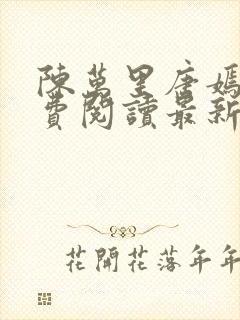 陳萬里唐嫣
費閱讀最新
花開花落年年